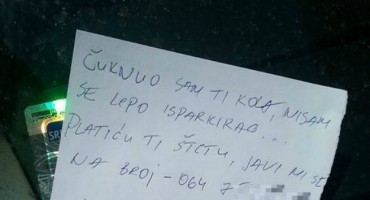 ČUKNUO SAM TI KOLA, NISAM
SE LEPO ISPARKIRAO...
PLATIĆU TI ŠTETU, JAVI MI SE
NA BROJ - 064 7